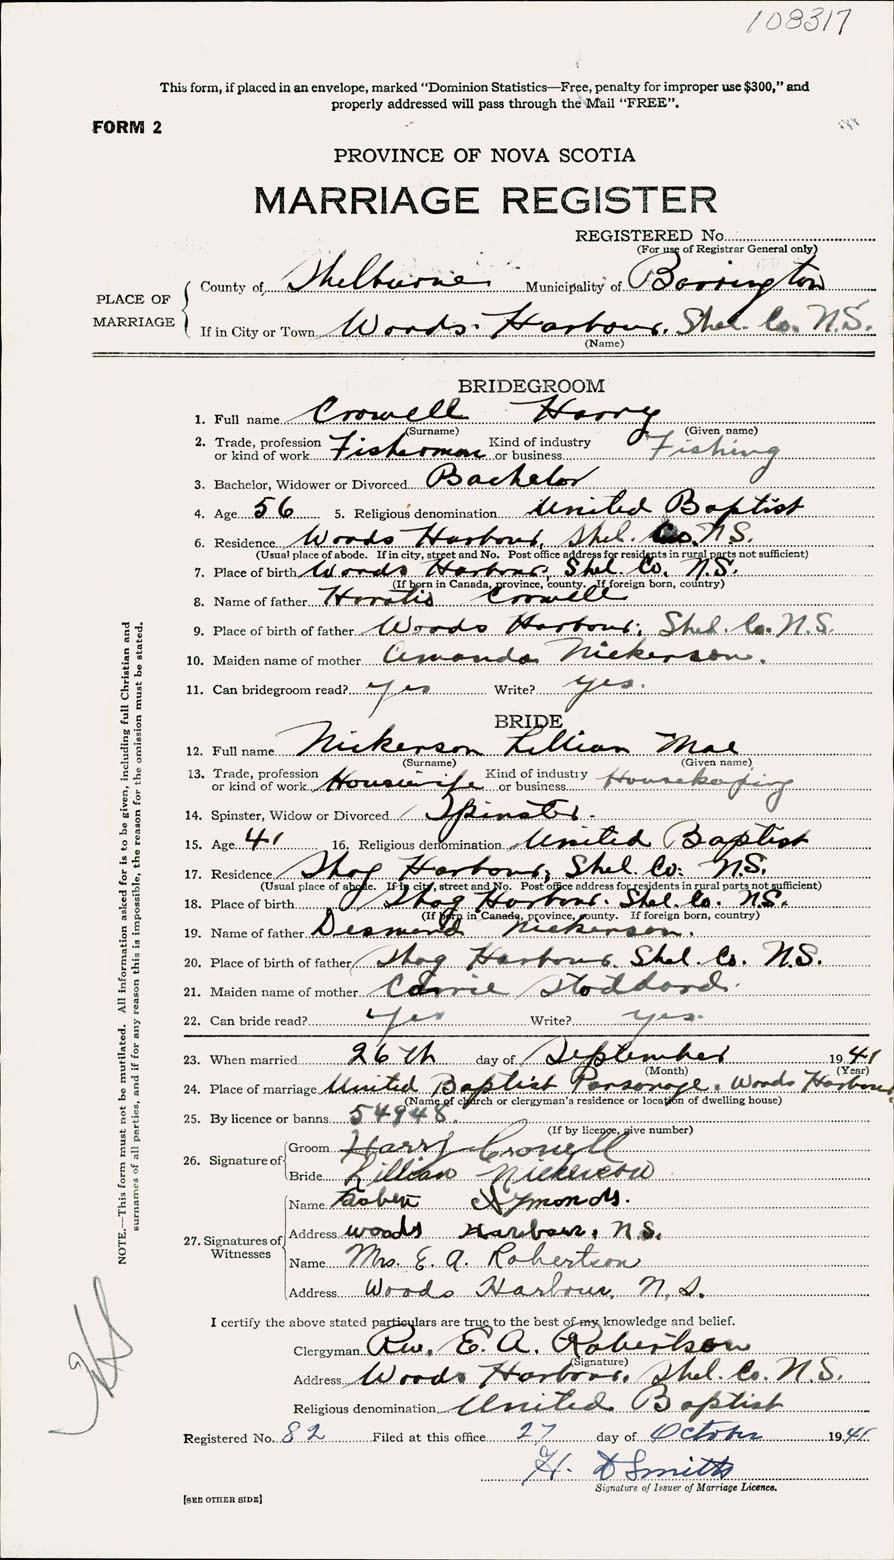 108317
This form, if placed in an envelope, marked “Dominion Statistics—Free, penalty for improper use $300,” and
properly addressed will pass through the Mail “FREE”.
FORM 2
PROVINCE OF NOVA SCOTIA
MARRIAGE REGISTER
REGISTERED No.
(For use of Registrar General only)
PLACE OF MARRIAGE
County of Shelburne Municipality of Barrington
If in City or Town Woods Harbour, Shel. Co. N.S.
(Name)
BRIDEGROOM
1. Full name Crowell Harry
(Surname) (Given name)
2. Trade, profession or kind of work Fisherman Kind of industry or business Fishing
3. Bachelor, Widower or Divorced Bachelor
4. Age 56 5. Religious denomination United Baptist
6. Residence Woods Harbour, Shel. Co. N.S.
(Usual place of abode. If in city, street and No. Post office address for residents in rural parts not sufficient)
7. Place of birth Woods Harbour, Shel. Co. N.S.
(If born in Canada, province, county. If foreign born, country)
8. Name of father Horatio Crowell
9. Place of birth of father Woods Harbour, Shel. Co. N.S.
10. Maiden name of mother Amanda Nickerson.
11. Can bridegroom read? yes Write? yes.
BRIDE
12. Full name Nickerson Lillian Mae
(Surname) (Given name)
13. Trade, profession or kind of work Housewife Kind of industry or business Housekeeping
14. Spinster, Widow or Divorced Spinster.
15. Age 41 16. Religious denomination United Baptist
17. Residence Shag Harbour, Shel. Co. N.S.
(Usual place of abode. If in city, street and No. Post office address for residents in rural parts not sufficient)
18. Place of birth Shag Harbour. Shel. Co. N.S.
(If born in Canada, province, county. If foreign born, country)
19. Name of father Desmond Nickerson.
20. Place of birth of father Shag Harbour. Shel. Co. N.S.
21. Maiden name of mother Carrie Stoddard.
22. Can bride read? yes Write? yes.
23. When married 26th day of September 1941
(Month) (Year)
24. Place of marriage United Baptist Parsonage. Woods Harbour
(Name of church or clergyman's residence or location of dwelling house)
25. By licence or banns 54948.
(If by licence, give number)
26. Signature of Groom Harry Crowell
Bride Lillian Nickerson
27. Signatures of Witnesses
Name Symonds.
Address Woods Harbour, N.S.
Name Mrs. E. A. Robertson
Address Woods Harbour, N.S.
I certify the above stated particulars are true to the best of my knowledge and belief.
Clergyman Rev. E. A. Robertson
(Signature)
Address Woods Harbour, Shel. Co. N.S.
Religious denomination United Baptist
Registered No. 82 Filed at this office 27 day of October 1941
H. D Smith
Signature of Issuer of Marriage Licence.
[SEE OTHER SIDE]
NOTE.—This form must not be mutilated. All information asked for is to be given, including full Christian and
surnames of all parties, and if for any reason this is impossible, the reason for the omission must be stated.